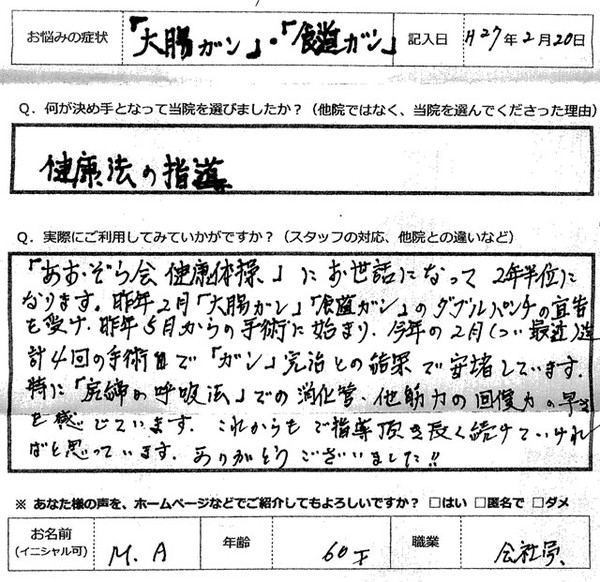 お悩みの症状 「大腸ガン」・「食道ガン」 記入日 H27年2月20日
Q. 何が決め手となって当院を選びましたか？（他院ではなく、当院を選んでくださった理由）
健康法の指導
Q. 実際にご利用してみていかがですか？（スタッフの対応、他院との違いなど）
「あおぞら会 健康体操」にお世話になって 2年半位に
なります。昨年2月「大腸ガン」「食道ガン」のダブルパンチの宣告
を受け、昨年5月からの手術に始まり、今年の2月（つい最近）迄
計4回の手術 で「ガン」完治との結果で安堵しています。
特に「尻締め呼吸法」での消化管・他筋力の回復力の早さ
を感じています。これからもご指導頂き長く続けていけれ
ばと思っています。ありがとうございました!!
※ あなた様の声を、ホームページなどでご紹介してもよろしいですか？ □はい □匿名で □ダメ
お名前 (イニシャル可) M.A 年齢 60才 職業 会社員